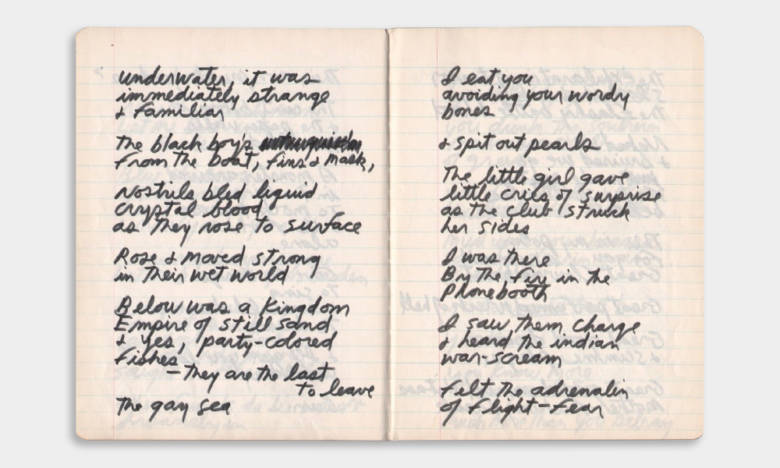 underwater, it was
immediately strange
& familiar
The black boy's
from the boat, fins & mask,
Nostrils bled liquid
crystal blood
as they rose to surface
Rose & moved strong
in their wet world
Below was a Kingdom
Empire of still sand
& yes, party-colored
fishes
—they are the last
to leave
The gay sea
I eat you
avoiding your wordy
bones
& spit out pearls
The little girl gave
little cries of surprise
as the club struck
her sides
I was there
By the fire in the
Phonebooth
I saw them charge
& heard the indian
war-scream
felt the adrenalin
of flight-fear